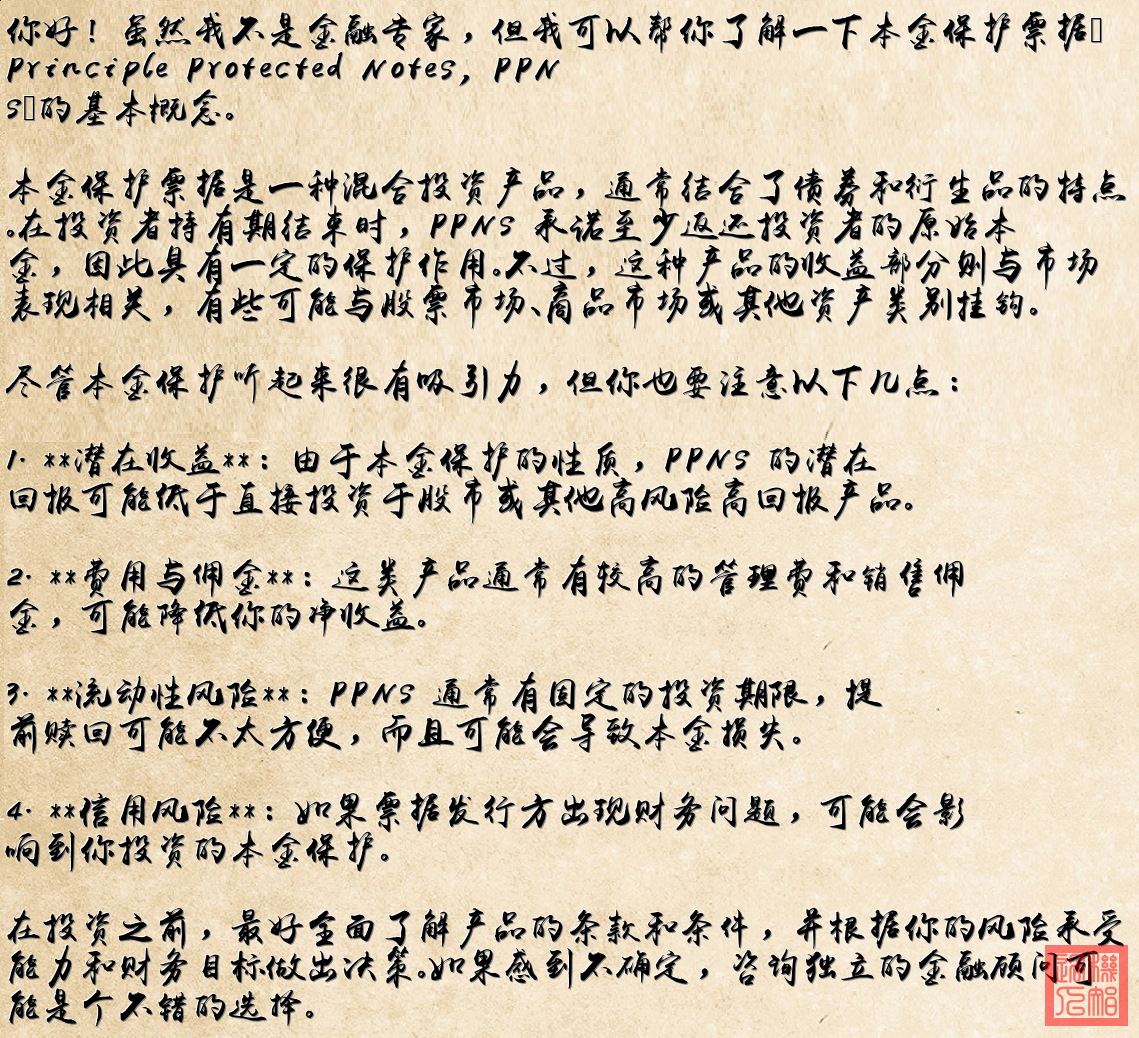 你好！虽然我不是金融专家，但我可以帮你了解一下本金保护票据
Principle Protected Notes, PPN
S的基本概念。
本金保护票据是一种混合投资产品，通常结合了债券和衍生品的特点
。在投资者持有期结束时，PPNS 承诺至少返还投资者的原始本
金，因此具有一定的保护作用。不过，这种产品的收益部分则与市场
表现相关，有些可能与股票市场、商品市场或其他资产类别挂钩。
尽管本金保护听起来很有吸引力，但你也要注意以下几点：
1. **潜在收益**：由于本金保护的性质，PPNS 的潜在
回报可能低于直接投资于股市或其他高风险高回报产品。
2. **费用与佣金**：这类产品通常有较高的管理费和销售佣
金，可能降低你的净收益。
3. **流动性风险**：PPNS 通常有固定的投资期限，提
前赎回可能不太方便，而且可能会导致本金损失。
4. **信用风险**：如果票据发行方出现财务问题，可能会影
响到你投资的本金保护。
在投资之前，最好全面了解产品的条款和条件，并根据你的风险承受
能力和财务目标做出决策。如果感到不确定，咨询独立的金融顾问可
能是个不错的选择。